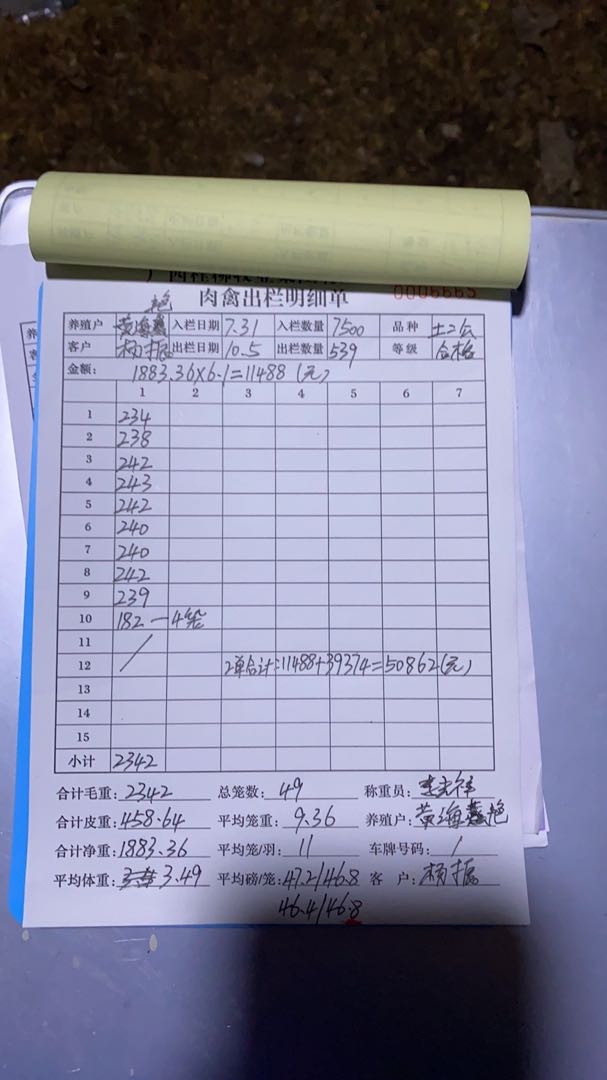 肉禽出栏明细单
0006665
艳
养殖户 黄海 入栏日期 7.31 入栏数量 7500 品种 土2公
客户 杨振 出栏日期 10.5 出栏数量 539 等级 合格
金额: 1883.36×6.1=11488(元)
1 2 3 4 5 6 7
1 234
2 238
3 242
4 243
5 242
6 240
7 240
8 242
9 239
10 182 — 4笼
11 /
12 2单合计:11488+39374=50862(元)
13
14
15
小计 2342
合计毛重: 2342 总笼数: 49 称重员:
合计皮重: 458.64 平均笼重: 9.36 养殖户: 黄海艳
合计净重: 1883.36 平均笼/羽: 11 车牌号码: /
平均体重: 3.49 平均磅/笼: 47.2/46.8 客 户: 杨振
46.4/46.8